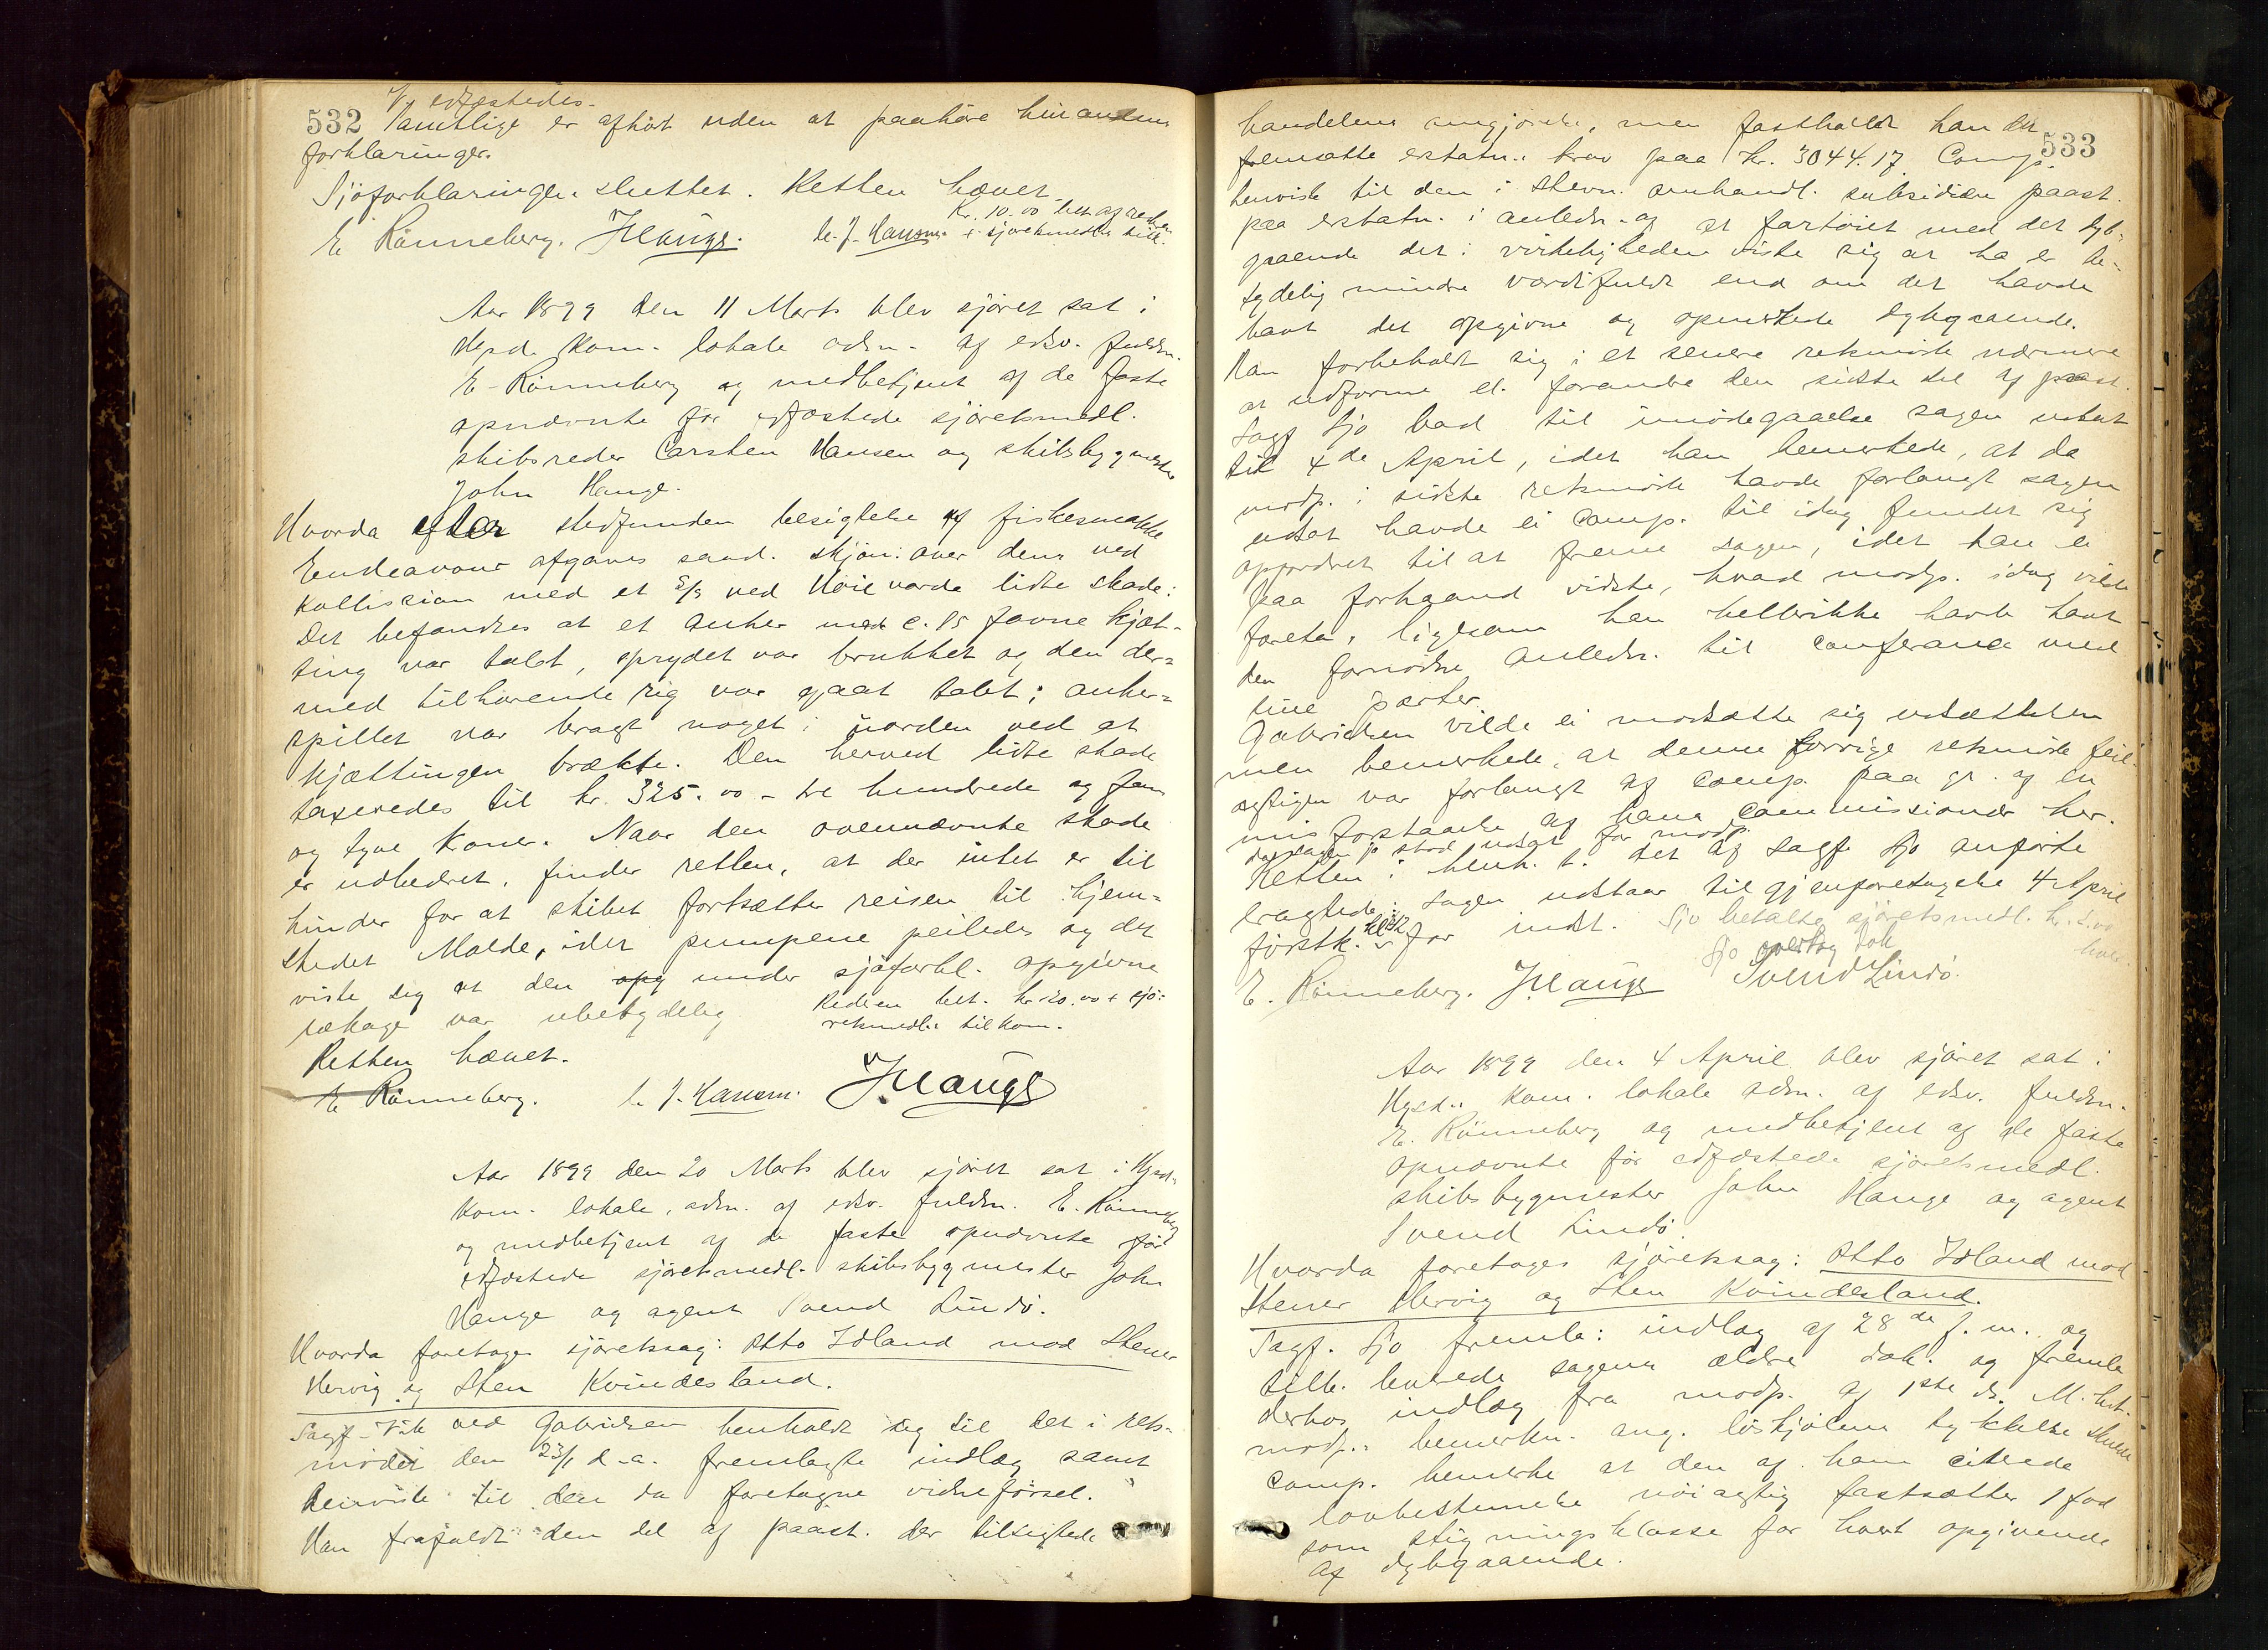 532
V. edfæstedes.
Samtlige er afhört uden at paahöre hinandens
forklaringer.
Sjöforklaringen sluttet. Retten hævet
Kr. 10.00 bet. af
E Rönneberg. JHauge. C. J. Hansen + sjöretsmedl.s
Aar 1899 den 11 Marts blev sjöret sat i
Hgsd. kom. lokale adm. af edsv. fuldm.
E. Rönneberg og medbetjent af de faste
opnævnte før edfæstede sjöretsmedl.
skibsreder Carsten Hansen og skibsbygmester
John Hauge.
Hvorda efter stedfunden besigtelse af fiskesmakke
Endeavour afgaves saad. skjön over dens ved
Kollission med et S/S ved Höievarde lidte skade:
Det befandtes at et anker med c. 15 favne kjæt-
ting var tabt, sprydet var brukket og den der=
med tilhörende rig var gaat tabt; anker=
spillet var bragt noget i uorden ved at
kjættingen brækte. Den herved lidte skade
taxeredes til kr. 325.00 - tre hundrede og fem
og tyve Kroner. Naar den ovennævnte skade
er udbedret, finder retten, at der intet er til
hinder for at skibet fortsætter reisen til hjem=
stedet Molde, idet pumpene peiledes og det
viste sig at den opg under sjöforkl. opgivne
lækage var ubetydelig
Rederen bet. kr. 20.00 + sjö-
retsmedl.s tilkom.
Retten hævet.
E Rönneberg. C. J. Hansen. JHauge
Aar 1899 den 20 Marts blev sjöret sat i Hgsd.s
kom. lokale, adm. af edsv. fuldm. E. Rönneberg
og medbetjent af de faste opnævnte før
edfæstede sjöretsmedl. skibsbygmester John
Hauge og agent Svend Lindö.
Hvorda foretoges sjöretssag: Otto Idland mod Stener
Hervig og Sten Kvindesland.
Sagf. ved Gabrielsen henholdt sig til det i rets-
mödet den 23/1 d.a. fremlagte indlæg samt
henviste til den da foretagne vidneførsel.
Han frafaldt den del af paast. der tilsigtede
533
handelens omgjörelse, men fastholdt han den
fremsatte erstatn.s krav paa kr. 3044.17. Comp.
henviste til den i stevn. omhandl. subsidiære paast.
paa erstatn. i anledn. af at fartöiet med det dyb-
gaaende det i virkeligheden viste sig at ha er be-
tydelig mindre værdifuldt end om det havde
havt det opgivne og opmerkede dybgaaende.
Han forbeholdt sig i et senere retsmöde nærmere
at udforme el. forandre den sidste del af paast.
Sagf Sjo bad til imödegaaelse sagen udsat
til 4de April, idet han bemerkede, at da
modp. i sidste retsmöde havde forlangt sagen
udsat havde ei Comp. til idag fundet sig
opfordret til at fremme sagen, idet han ei
paa forhaand vidste, hvad modp. idag vilde
foreta, ligesom han hellerikke havde havt
den fornödne anledn. til conferance med
sine parter.
Gabrielsen vilde ei modsætte sig udsættelsen
men bemerkede, at denne forrige retsmöde feil-
agtigen var forlangt af Comp. paa gr. af en
misforstaaelse af hans Commissionær her.
for modp.
Retten i henh. t. det af Sagf Sjo anförte
eragtede: Sagen udstaar til gjenforetagelse 4 April
förstk. kl 12 for indt. Sjo betalte sjöretsmedl. kr. 2.00
hver.
Sjo overtog dok
E. Rönneberg. JHauge Svend Lindö.
Aar 1899 den 4 April blev sjöret sat i
Hgsd.s kom. lokale adm. af edsv. fuldm.
E. Rönneberg og medbetjent af de faste
opnævnte før edfæstede sjöretsmedl.
skibsbygmester John Hauge og agent
Svend Lindö.
Hvorda foretoges sjöretssag: Otto Idland mod
Stener Hervig og Sten Kvindesland.
Sagf. Sjo fremla: indlæg af 28de f.m., og
tilb. leverede sagens ældre dok. og fremla
derhos indlæg fra modp. af 1ste ds. M. hst.
modp.s bemerkn. ang. löskjölens tykkelse skulde
comp. bemerke at den af ham citerede
lovbestemmelse nöiagtig fastsætter 1 fod
som stigningsklasse for hvert opgivende
af dybgaaende.